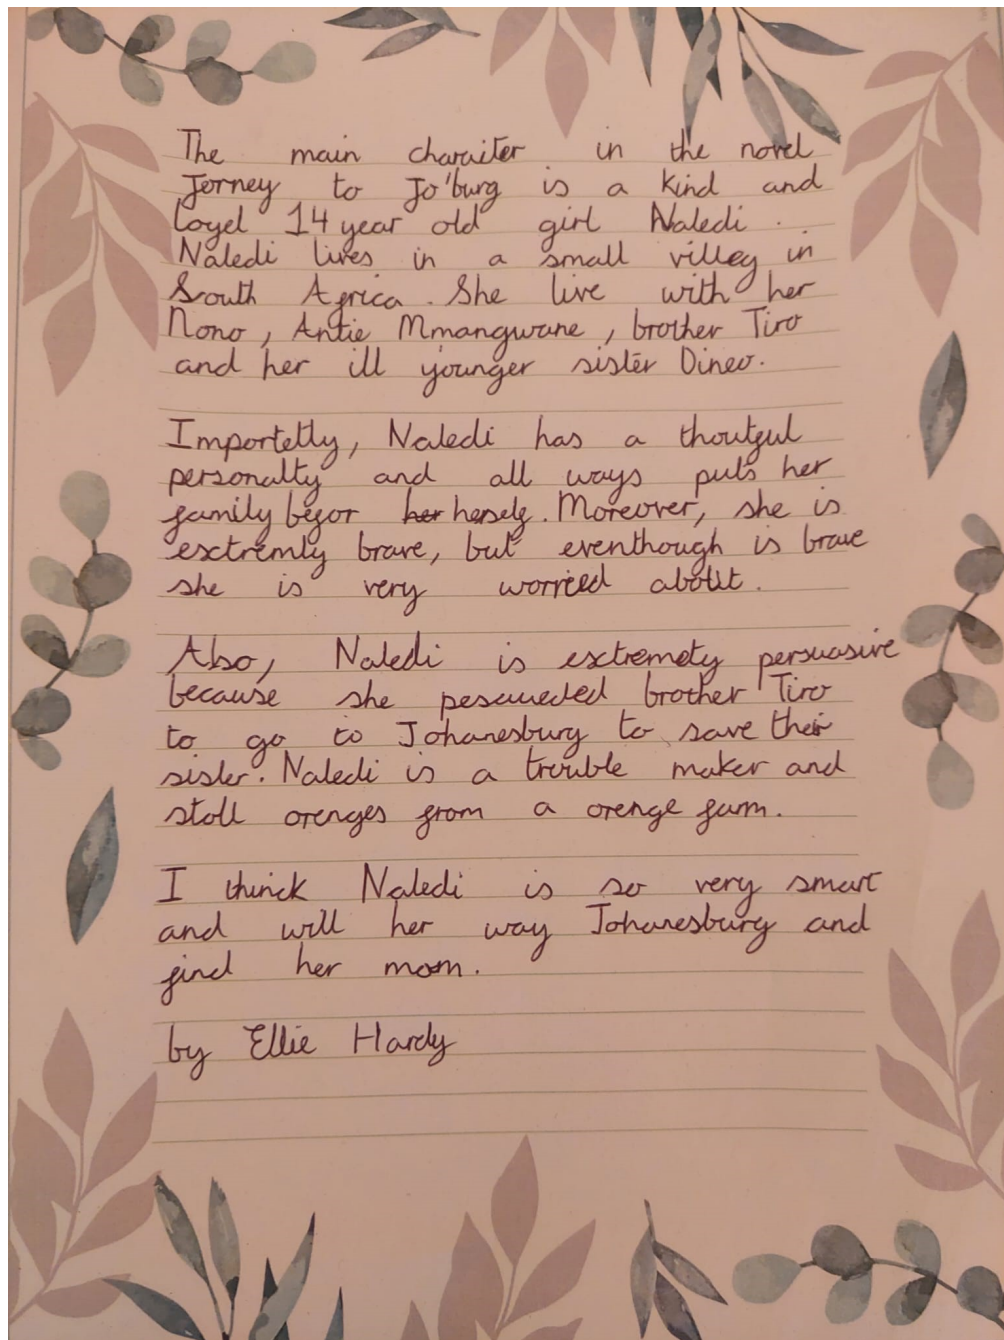 The main charaiter in the novel
Jorney to Jo'burg is a kind and
loyel 14 year old girl Naledi.
Naledi lives in a small villey in
South Africa. She live with her
Nono, Antie Mmangwane, brother Tiro
and her ill younger sister Dineo.
Importetly, Naledi has a thoutful
personalty and all ways puts her
family befor her herself. Moreover, she is
esctremly brave, but eventhough is brave
she is very worried about.
Also, Naledi is esctremety persuasive
because she pesaueded brother Tiro
to go to Johanesburg to save their
sister. Naledi is a trouble maker and
stoll orenges from a orenge farm.
I thinck Naledi is so very smart
and will her way Johanesburg and
find her mom.
by Ellie Hardy